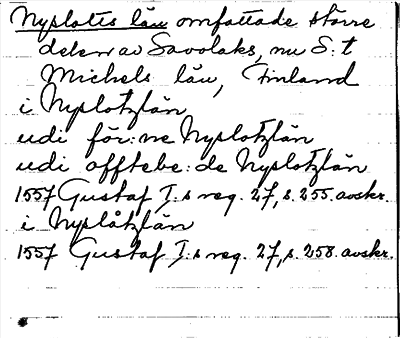 Nyslotts län omfattade större
delen av Savolaks, nu S:t
Michels län, Finland
i Nyslotzlän
udi för:ne Nyslotzlän
udi offtebe:de Nyslotzlän
1557 Gustaf I:s reg. 27, s. 255. avskr.
i Nyslåtzlän
1557 Gustaf I:s reg. 27, s. 258. avskr.